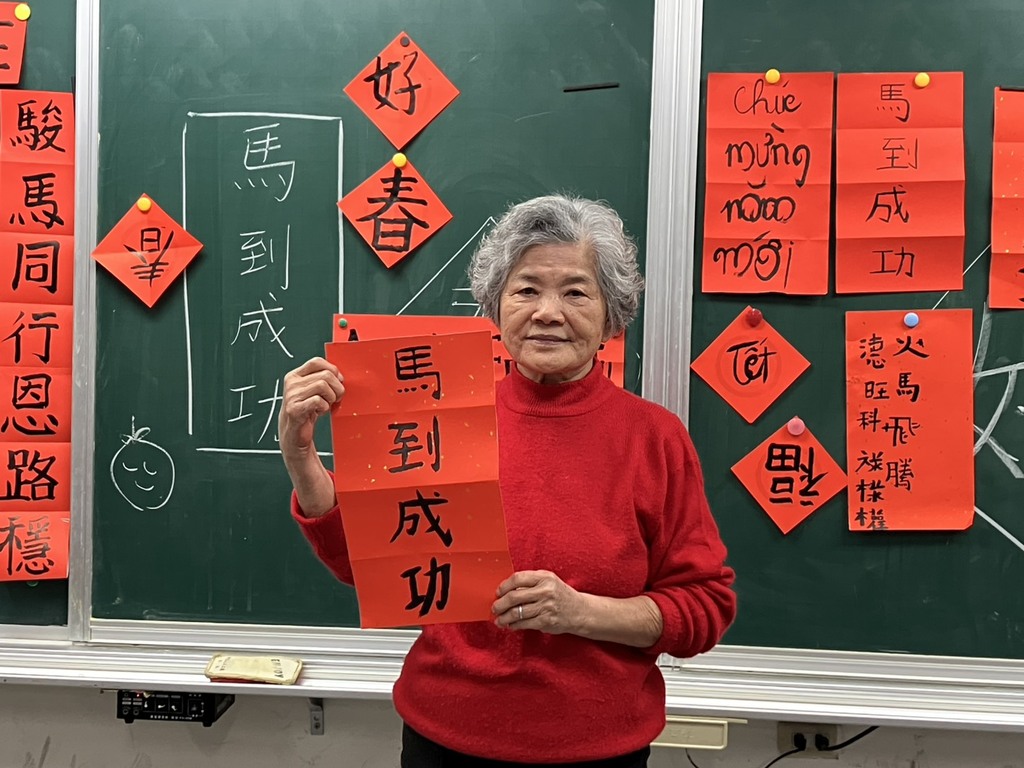 駿馬同行恩路穩
春
馬到成功
好
春
馬到成功
Chúc
mừng
năm
mới
馬到成功
Tết
福
火馬飛騰
德旺科